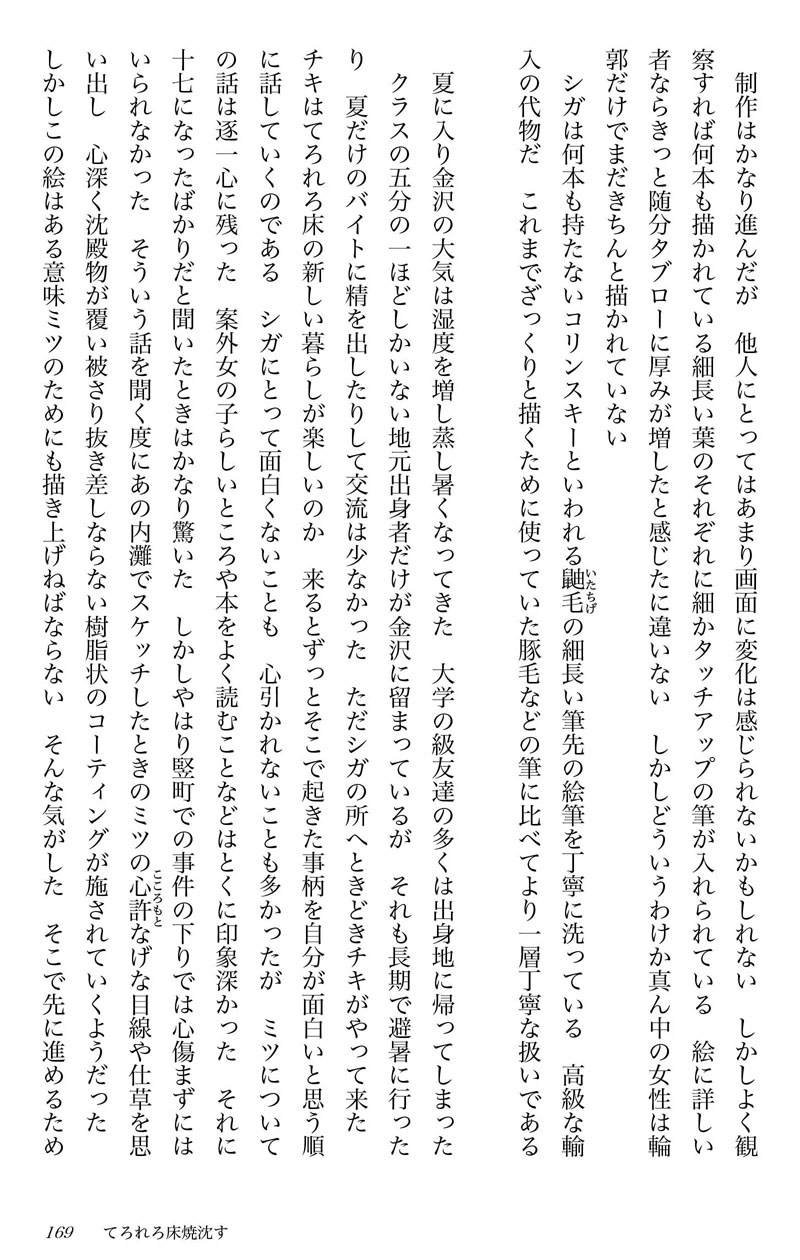 制作はかなり進んだが　他人にとってはあまり画面に変化は感じられないかもしれない　しかしよく観
察すれば何本も描かれている細長い葉のそれぞれに細かタッチアップの筆が入れられている　絵に詳しい
者ならきっと随分タブローに厚みが増したと感じたに違いない　しかしどういうわけか真ん中の女性は輪
郭だけでまだきちんと描かれていない
シガは何本も持たないコリンスキーといわれる鼬毛の細長い筆先の絵筆を丁寧に洗っている　高級な輸
いたちげ
入の代物だ　これまでざっくりと描くために使っていた豚毛などの筆に比べてより一層丁寧な扱いである
夏に入り金沢の大気は湿度を増し蒸し暑くなってきた　大学の級友達の多くは出身地に帰ってしまった
クラスの五分の一ほどしかいない地元出身者だけが金沢に留まっているが　それも長期で避暑に行った
り　夏だけのバイトに精を出したりして交流は少なかった　ただシガの所へときどきチキがやって来た
チキはてろれろ床の新しい暮らしが楽しいのか　来るとずっとそこで起きた事柄を自分が面白いと思う順
に話していくのである　シガにとって面白くないことも　心引かれないことも多かったが　ミツについて
の話は逐一心に残った　案外女の子らしいところや本をよく読むことなどはとくに印象深かった　それに
十七になったばかりだと聞いたときはかなり驚いた　しかしやはり竪町での事件の下りでは心傷まずには
いられなかった　そういう話を聞く度にあの内灘でスケッチしたときのミツの心許なげな目線や仕草を思
こころもと
い出し　心深く沈殿物が覆い被さり抜き差しならない樹脂状のコーティングが施されていくようだった
しかしこの絵はある意味ミツのためにも描き上げねばならない　そんな気がした　そこで先に進めるため
169　てろれろ床焼沈す